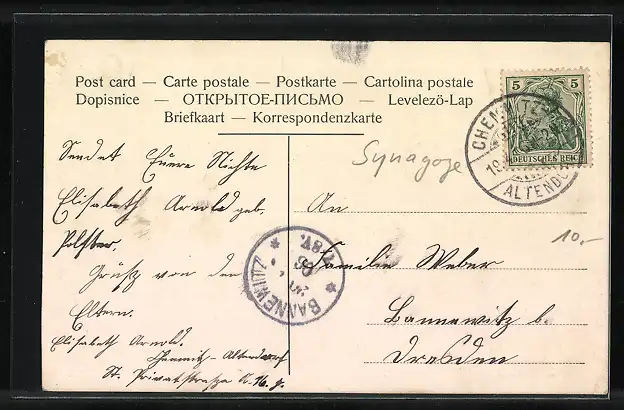 Post card — Carte postale — Postkarte — Cartolina postale
Dopisnice — ОТКРЫТОЕ-ПИСЬМО — Levelezö-Lap
Briefkaart — Korrespondenzkarte
5 5
DEUTSCHES REICH
CHEMNITZ
ALTENDORF
Synagoge
10.-
Sendet Euere Nichte
Elisabeth Arnold geb.
Grüße von den
Eltern.
Elisabeth Arnold.
Chemnitz-Altendorf
St. Privatstraße N. 16. g.
BANNEWITZ
An
Familie Weber
Bannewitz b.
Dresden